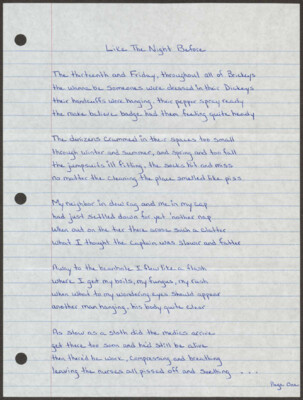 Like The Night Before
The thirteenth and Friday, throughout all of Brickeys
the wanna be someones were dressed in their Dickeys
their handcuffs were hanging, their pepper spray ready
the make believe badge had them feeling quite heady
The denizens crammed in their spaces too small
through winter and summer, and spring and too fall
the jumpsuits ill fitting, the socks hit and miss
no matter the cleaning the place smelled like piss
My neighbor in dew rag and me in my cap
had just settled down for yet 'nother nap
When out on the tier there arose such a clatter
what I thought the Captain was slower and fatter
Away to the beanhole I flew like a flash
where I get my boils, my funges, my rash
when what to my wondering eyes should appear
another man hanging, his body quite clear
As slow as a sloth did the medics arrive
get there too soon and he'd still be alive
then there'd be work, compressing and breathing
leaving the nurses all pissed off and seething ...
Page One